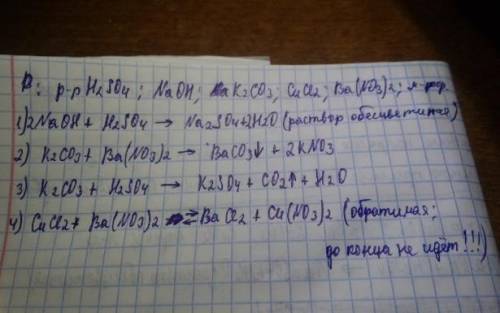 Р: р-р H₂SO₄; NaOH; K₂CO₃; CuCl₂; Ba(NO₃)₂;
1) 2NaOH + H₂SO₄ → Na₂SO₄+2H₂O (раствор обесцветился)
2) K₂CO₃ + Ba(NO₃)₂ → BaCO₃↓ + 2KNO₃
3) K₂CO₃ + H₂SO₄ → K₂SO₄ + CO₂↑ + H₂O
4) CuCl₂ + Ba(NO₃)₂ ⇄ BaCl₂ + Cu(NO₃)₂ (обратимая;
до конца не идёт!!!)